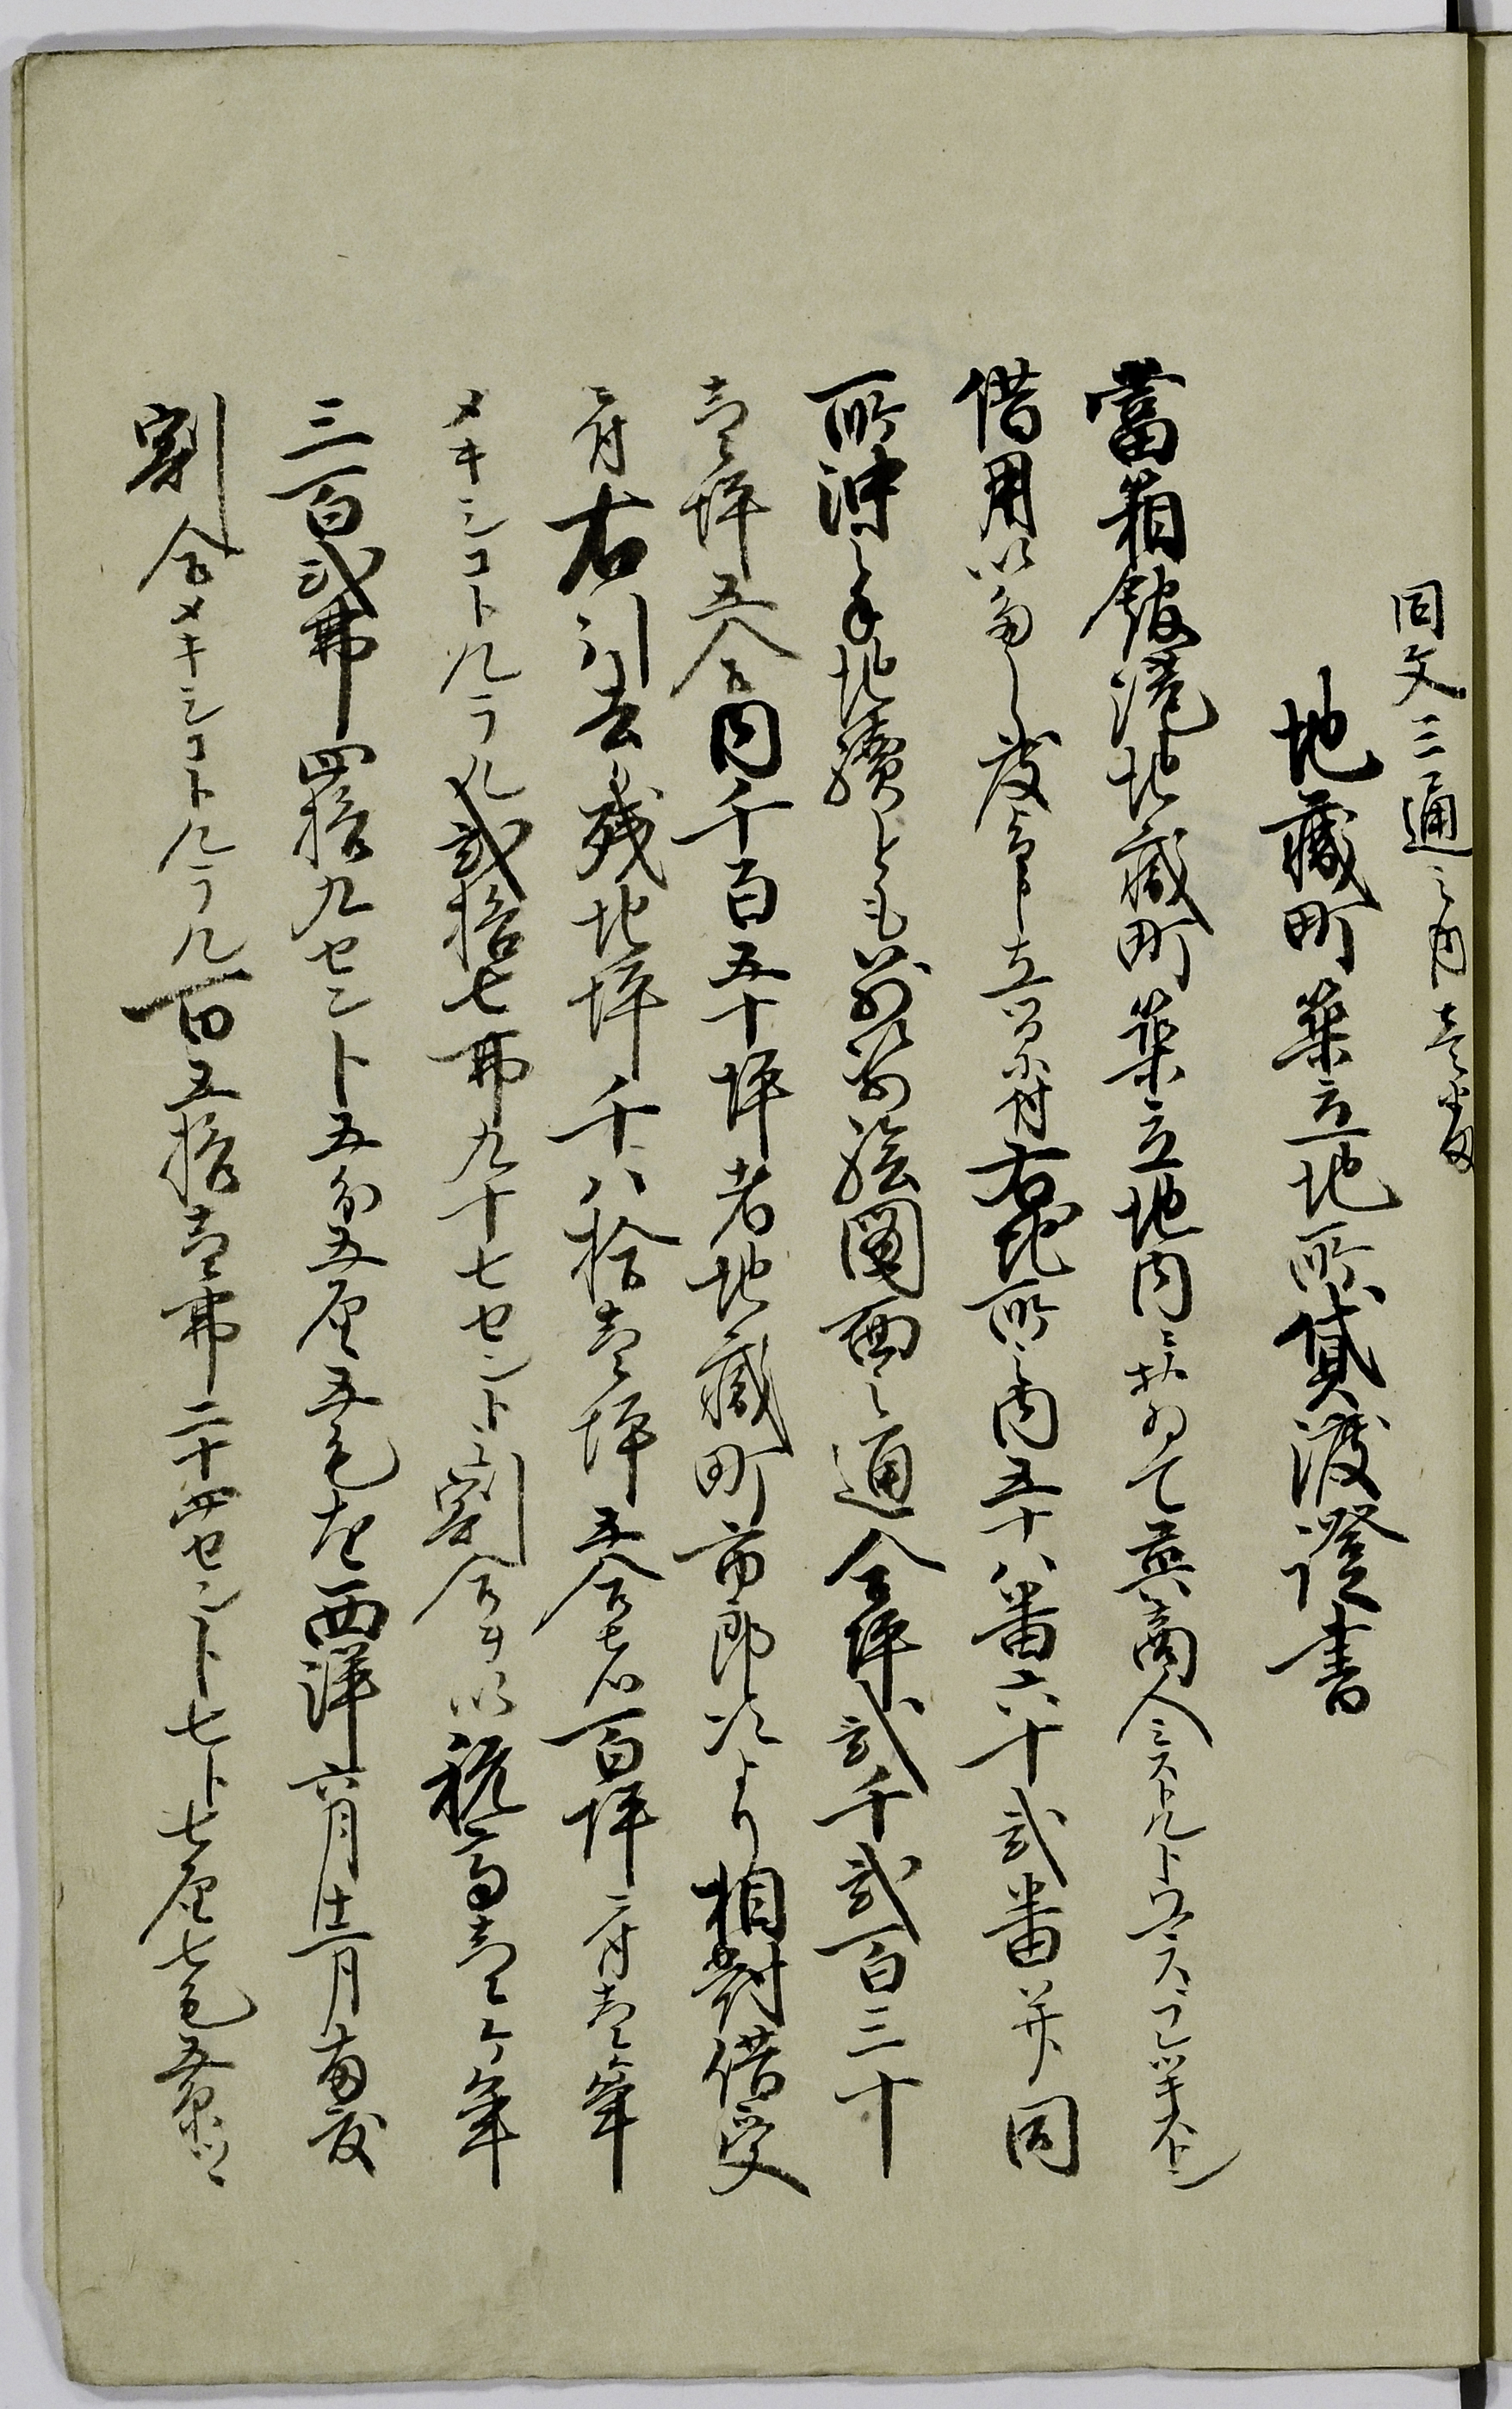 同文三通之内壱番
地藏町築立地所貸渡證書
當箱館港地藏町築立地内ニおゐて英商人ミストルトウス
借用いたし度旨申立候ニ付右地所之内五十八番六十弐番并同
所沖之手地續とも別紙繪圖面之通全坪弐千弐百三十
壱坪五合内千百五十坪者地藏町市郎次より相對借受
ニ付右引去残地坪千八拾壱坪五合者百坪ニ付壱ケ年
メキシコトルラル弐拾七弗九十七セント之割合ヲ以税高壱ケ年
三百弐弗四拾九セント五分五厘五毛を西洋六月十二月両度
割合メキシコトルラル百五拾壱弗二十四セント七ト七厘七毛五糸ツヽ